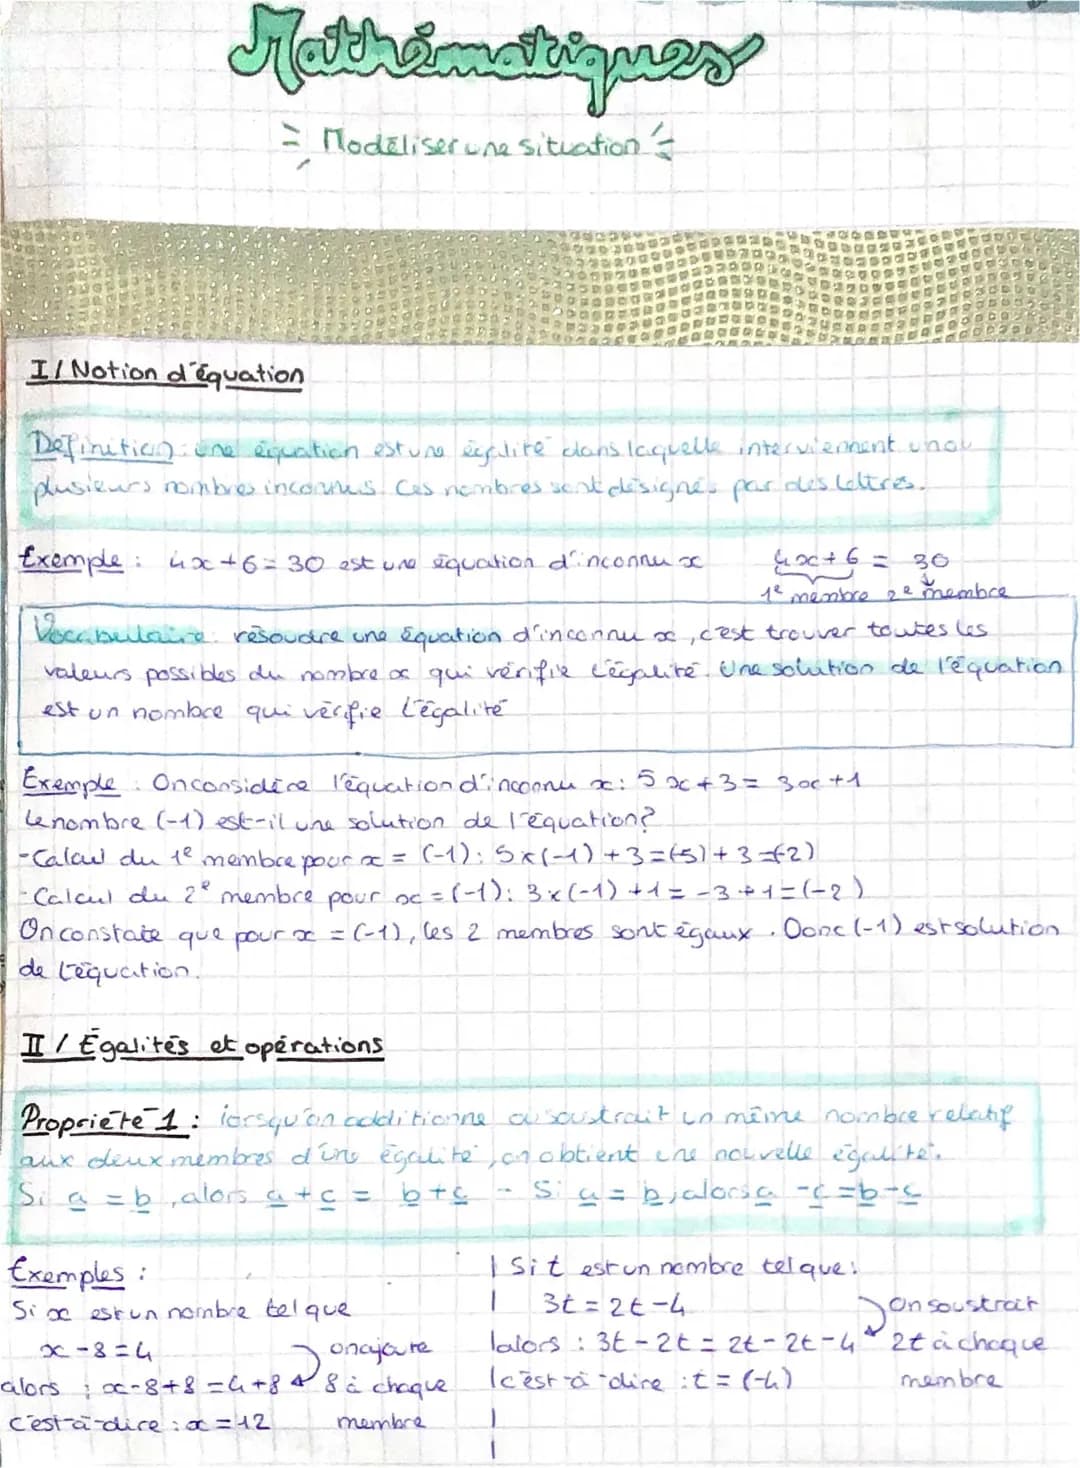 Mathématiques
Modéliser une situation
I/ Notion d'équation
Définition : une équation est une égalité dans laquelle interviennent un ou
plusieurs nombres inconnus. Ces nombres sont désignés par des lettres.
Exemple : 4x+6=30 est une équation d'inconnu x
4x+6 = 30
1e membre 2e membre
Vocabulaire : résoudre une équation d'inconnu x, c'est trouver toutes les
valeurs possibles du nombre x qui vérifie l'égalité. Une solution de l'équation
est un nombre qui vérifie l'égalité
Exemple : On considère l'équation d'inconnu x : 5x+3=3x+1
Le nombre (-1) est-il une solution de l'équation?
- Calcul du 1e membre pour x = (-1) : 5x(-1)+3=(-5)+3=(-2)
- Calcul du 2e membre pour x = (-1) : 3x(-1)+1=-3+1=(-2)
On constate que pour x = (-1), les 2 membres sont égaux. Donc (-1) est solution
de l'équation.
II / Égalités et opérations
Propriété 1 : lorsqu'on additionne ou soustrait un même nombre relatif
aux deux membres d'une égalité, on obtient une nouvelle égalité.
Si a = b, alors a+c = b+c - Si a = b, alors a-c=b-c
Exemples :
Si x est un nombre tel que
x-8=4
alors : x-8+8=4+8
c'est-à-dire : x=12
on ajoute
8 à chaque
membre
Si t est un nombre tel que :
3t=2t-4
alors : 3t-2t=2t-2t-4
c'est-à-dire : t=(-4)
On soustrait
2t à chaque
membre